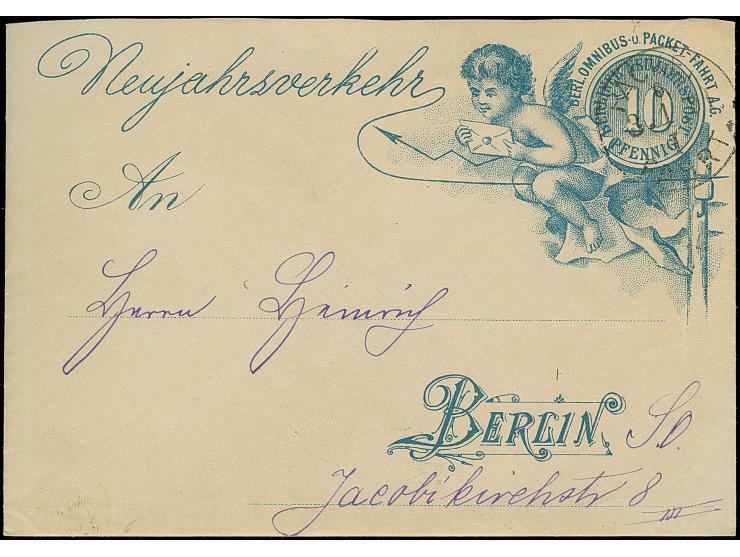 Neujahrsverkehr
BERL. OMNIBUS- U. PACKET-FAHRT A.G.
10
PFENNIG
An
Herrn Heinrich
BERLIN, SO
Jacobikirchstr 8
III